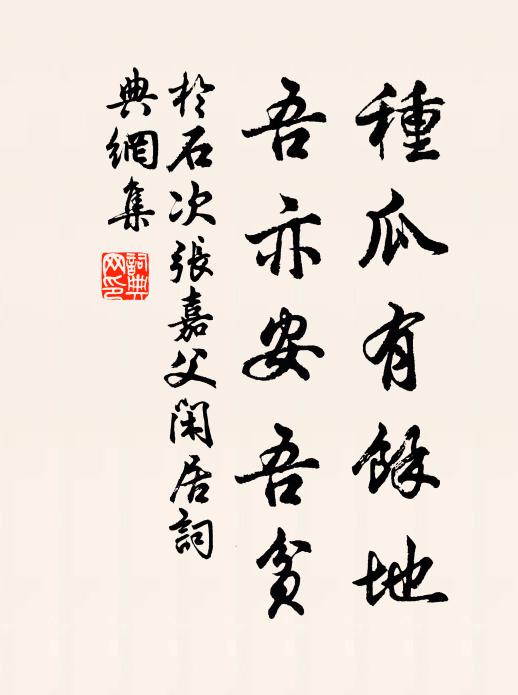 種瓜有餘地
吾亦安吾貧
於石次張嘉父閑居詞
典網集
詞典网印